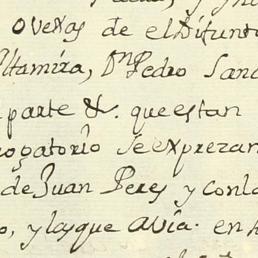 ovexas de el Difunto
Altamira, Dn Pedro Sanc
parte &. que estan
rogatorio Se exprezan
de Juan Peres y con lo
o, y las que avia. en